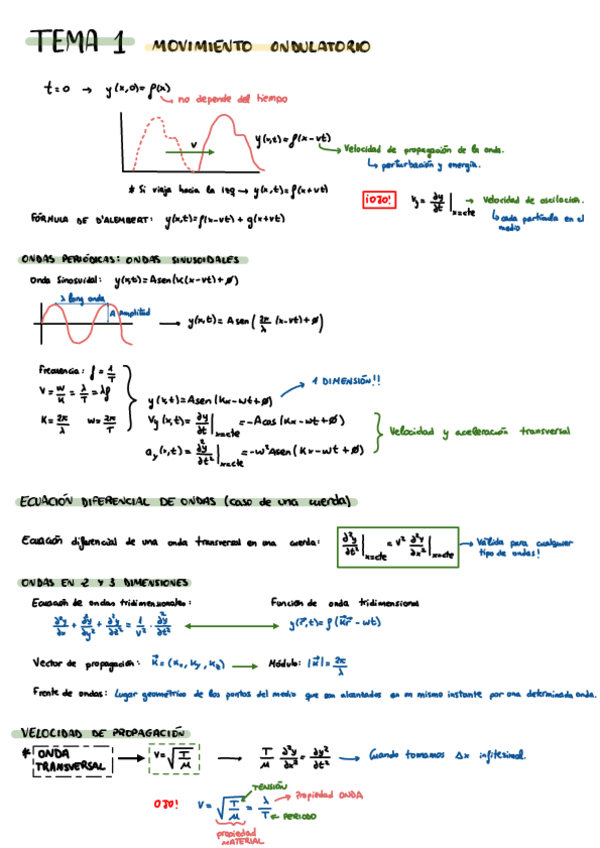 TEMA 1 MOVIMIENTO ONDULATORIO
t=0 → y(x,0)=f(x)
no depende del tiempo
y(x,t)=f(x-vt)
v
Velocidad de propagación de la onda.
perturbación y energía.
* Si viaja hacia la izq → y(x,t)=f(x+vt)
¡OJO! Vy = ∂y/∂t |x=cte → Velocidad de oscilación.
cada partícula en el
medio
FÓRMULA DE D'ALEMBERT: y(x,t)=f(x-vt) + g(x+vt)
ONDAS PERIÓDICAS: ONDAS SINUSOIDALES
Onda Sinusoidal: y(x,t)=Asen(k(x-vt)+ø)
λ long onda
A amplitud
→ y(x,t)=Asen(2π/λ (x-vt)+ø)
Frecuencia: f=1/T
V=w/k=λ/T=λf
K=2π/λ w=2π/T
y(x,t)=Asen(kx-wt+ø)
1 DIMENSIÓN!!
Vy(x,t)=∂y/∂t |x=cte =-Acos(kx-wt+ø)
ay(x,t)=∂²y/∂t² |x=cte =-w²Asen(kx-wt+ø)
Velocidad y aceleración transversal
ECUACIÓN DIFERENCIAL DE ONDAS (caso de una cuerda)
Ecuación diferencial de una onda transversal en una cuerda: ∂²y/∂t² |x=cte = v² ∂²y/∂x² |x=cte → Válida para cualquier
tipo de ondas!
ONDAS EN 2 Y 3 DIMENSIONES
Ecuación de ondas tridimensionales: Función de onda tridimensional
∂²y/∂x + ∂²y/∂y² + ∂²y/∂z² = 1/v² · ∂²y/∂t² ↔ y(r⃗,t)=f(k⃗r⃗-wt)
Vector de propagación: k⃗=(kx,ky,kz) → Módulo: |k⃗|=2π/λ
Frente de ondas: Lugar geométrico de los puntos del medio que son alcanzados en un mismo instante por una determinada onda.
VELOCIDAD DE PROPAGACIÓN
* ONDA
TRANSVERSAL → v=√(T/μ) → T/μ ∂²y/∂x² = ∂y²/∂t² → Cuando tomamos Δx infitesimal.
TENSIÓN
OJO! V=√(T/μ) = λ/T → Propiedad ONDA
PERIODO
propiedad
MATERIAL